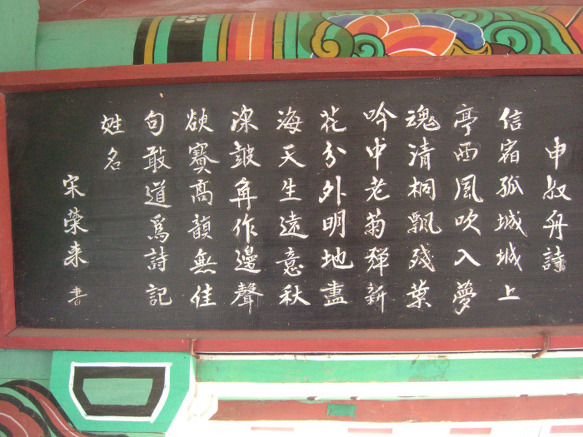 申叔舟詩
信宿孤城城上
亭西風吹入夢
魂清桐飄殘葉
吟中老菊殫新
花分外明地盡
海天生遠意秋
深皷角作邊聲
欲賽高韻無佳
句敢道爲詩記
姓名
宋榮來 書